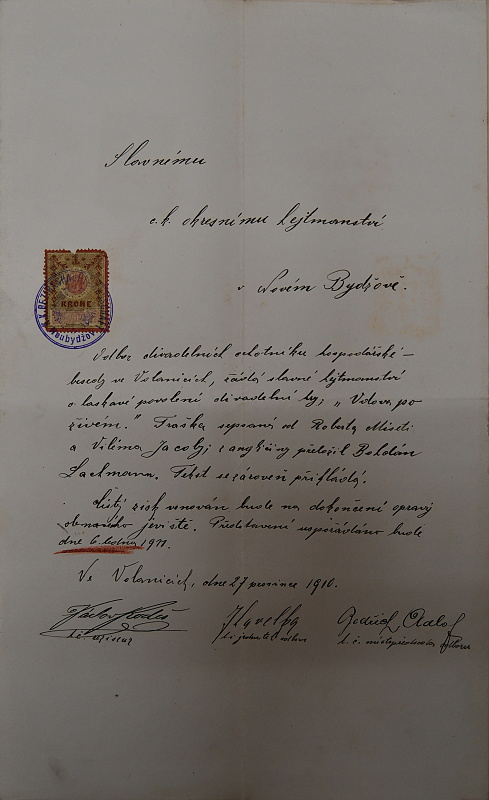 Slavnému
c. k. okresnímu hejtmanství
v Novém Bydžově.
KRONE
Odbor divadelních ochotníků hospodářské
besedy ve Volanicích, žádá slavné hejtmanství
o laskavé povolení divadelní hry; „Vdova po
živém." Fraška sepsaná od Roberta
a Viléma Jacoby; z angličiny přeložil Bohdán
Lachmann. Tekst se zároveň přikládá.
Čistý zisk věnován bude na dokončení opravy
jeviště. Představení uspořádáno bude
dne 6. ledna 1911.
Ve Volanicích, dne 27 prosince 1910.
Václav
t. č. režisér
t. č. jednatel odboru
t. č. místopředseda odboru